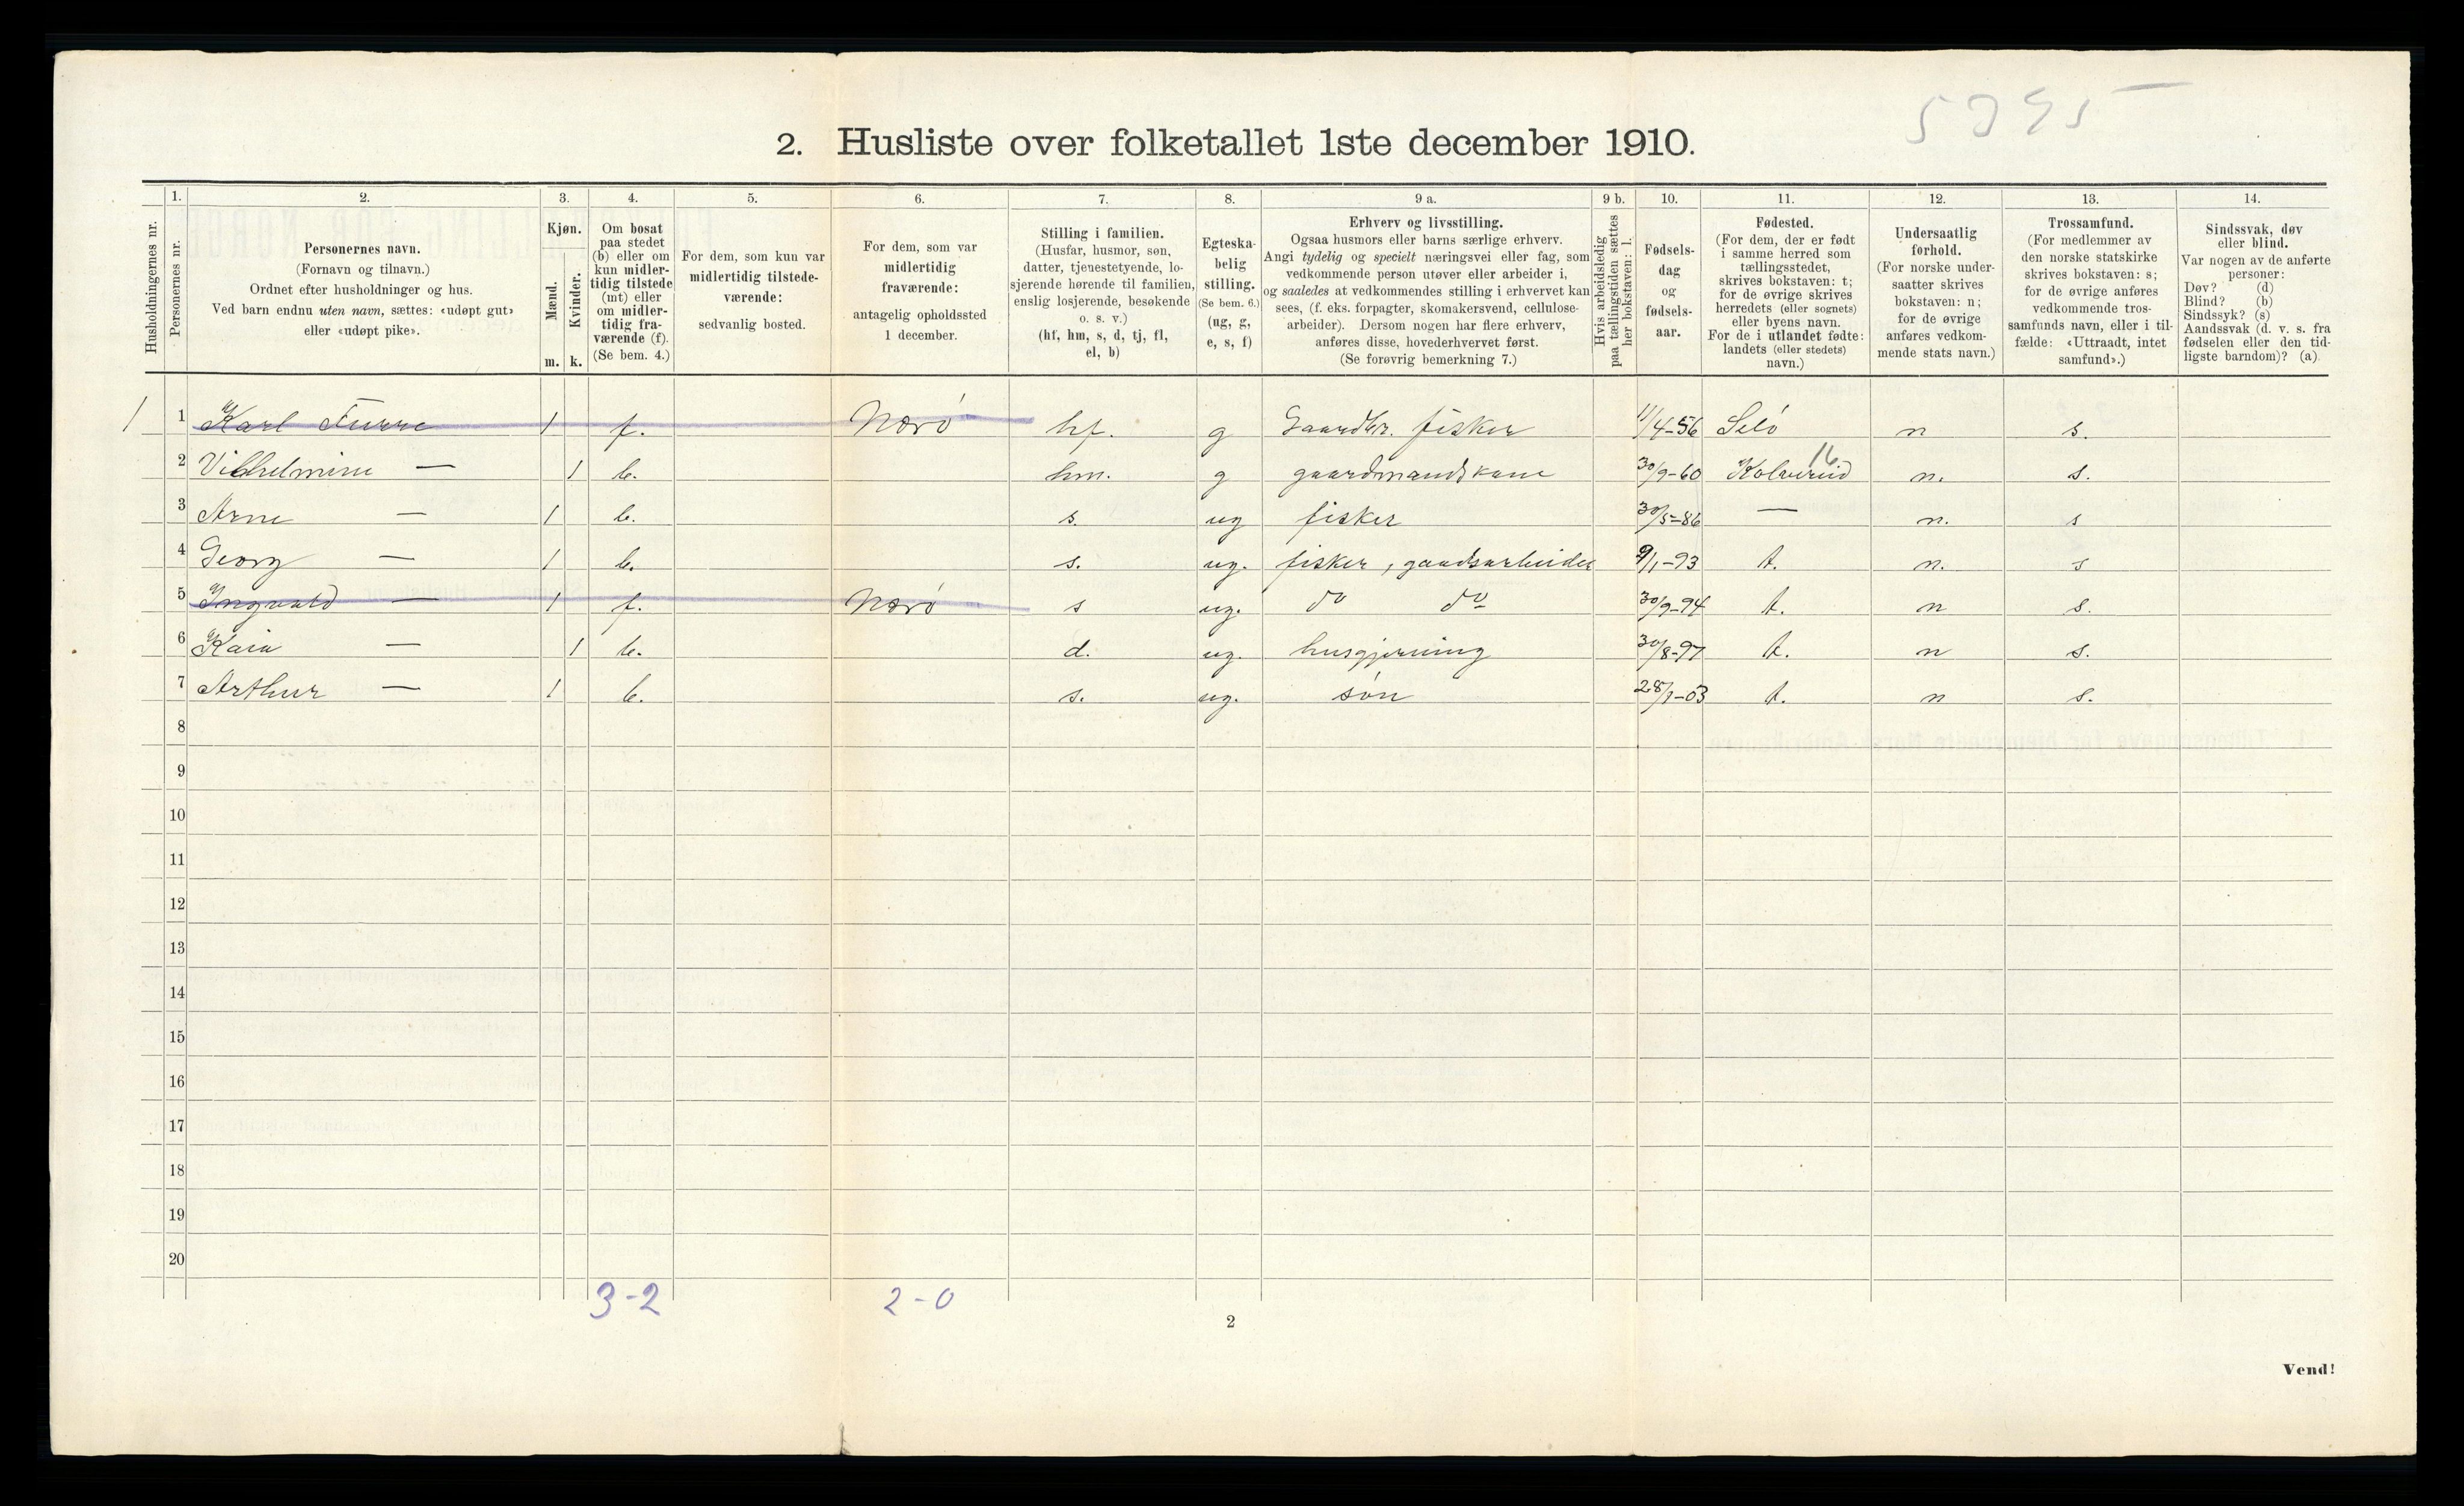 5395
2. Husliste over folketallet 1ste december 1910.
Husholdningernes nr.
1. Personernes nr.
2. Personernes navn. (Fornavn og tilnavn.) Ordnet efter husholdninger og hus. Ved barn endnu uten navn, sættes: «udøpt gut» eller «udøpt pike».
3. Kjøn. Mænd. m. Kvinder. k.
4. Om bosat paa stedet (b) eller om kun midlertidig tilstede (mt) eller om midlertidig fraværende (f). (Se bem. 4.)
5. For dem, som kun var midlertidig tilstedeværende: sedvanlig bosted.
6. For dem, som var midlertidig fraværende: antagelig opholdssted 1 december.
7. Stilling i familien. (Husfar, husmor, søn, datter, tjenestetyende, losjerende hørende til familien, enslig losjerende, besøkende o. s. v.) (hf, hm, s, d, tj, fl, el, b)
8. Egteskabelig stilling. (Se bem. 6.) (ug, g, e, s, f)
9 a. Erhverv og livsstilling. Ogsaa husmors eller barns særlige erhverv. Angi tydelig og specielt næringsvei eller fag, som vedkommende person utøver eller arbeider i, og saaledes at vedkommendes stilling i erhvervet kan sees, (f. eks. forpagter, skomakersvend, cellulosearbeider). Dersom nogen har flere erhverv, anføres disse, hovederhvervet først. (Se forøvrig bemerkning 7.)
9 b. Hvis arbeidsledig paa tællingstiden sættes her bokstaven: l.
10. Fødselsdag og fødselsaar.
11. Fødested. (For dem, der er født i samme herred som tællingsstedet, skrives bokstaven: t; for de øvrige skrives herredets (eller sognets) eller byens navn. For de i utlandet fødte: landets (eller stedets) navn.)
12. Undersaatlig forhold. (For norske undersaatter skrives bokstaven: n; for de øvrige anføres vedkommende stats navn.)
13. Trossamfund. (For medlemmer av den norske statskirke skrives bokstaven: s; for de øvrige anføres vedkommende trossamfunds navn, eller i tilfælde: «Uttraadt, intet samfund».)
14. Sindssvak, døv eller blind. Var nogen av de anførte personer: Døv? (d) Blind? (b) Sindssyk? (s) Aandssvak (d. v. s. fra fødselen eller den tidligste barndom)? (a).
1 1 Karl Furre 1 f. Nærö hf. g Gaardbr. fisker 11/4-56 Selö n s.
2 Vilhelmine — 1 b. hm. g gaardmandskone 30/9-60 Kolvereid 16 n. s.
3 Arne — 1 b. s. ug fisker 30/5-86 — n. s
4 Georg — 1 b. s. ug. fisker, gaardsarbeider 9/1-93 t. n. s
5 Ingvald — 1 f. Nærö s ug. do do 30/9-94 t. n s.
6 Kaia — 1 b. d. ug. husgjerning 30/8-97 t. n s.
7 Arthur — 1 b. s. ug. sön 28/1-03 t. n s.
8
9
10
11
12
13
14
15
16
17
18
19
20
3-2 2-0
2
Vend!